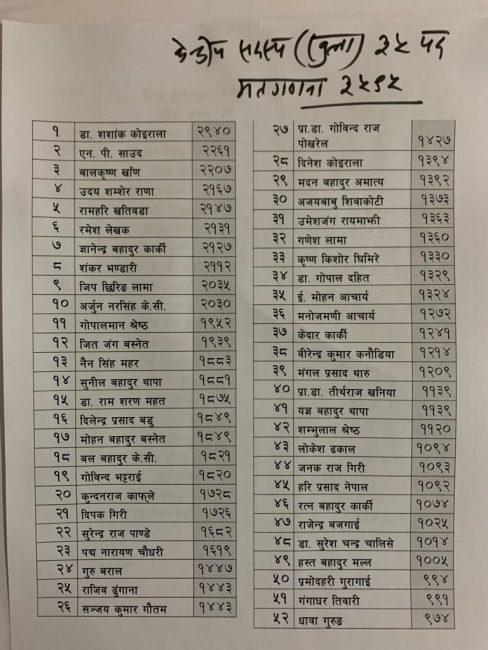 केन्द्रीय सदस्य (खुला) ३५ पद
मतगणना
१ डा. शशांक कोइराला २९४०
२ एन. पी. साउद २२६१
३ बालकृष्ण खाँण २२०७
४ उदय शम्शेर राणा २१६७
५ रामहरि खतिवडा २१४७
६ रमेश लेखक २१३१
७ ज्ञानेन्द्र बहादुर कार्की २१२७
८ शंकर भण्डारी २११२
९ जिप छिरिङ लामा २०३५
१० अर्जुन नरसिंह के.सी. २०३०
११ गोपालमान श्रेष्ठ १९५२
१२ जित जंग बस्नेत १९३९
१३ नैन सिंह महर १८८३
१४ सुनील बहादुर थापा १८८१
१५ डा. राम शरण महत १८७५
१६ दिलेन्द्र प्रसाद बडु १८४९
१७ मोहन बहादुर बस्नेत १८४९
१८ बल बहादुर के.सी. १८२१
१९ गोविन्द भट्टराई १८२०
२० कुन्दनराज काफ्ले १७२८
२१ दिपक गिरी १७२६
२२ सुरेन्द्र राज पाण्डे १६८२
२३ पद्म नारायण चौधरी १६१९
२४ गुरु बराल १४४७
२५ राजिव ढुंगाना १४४३
२६ सञ्जय कुमार गौतम १४४३
२७ प्रा.डा. गोविन्द राज
पोखरेल १४२७
२८ दिनेश कोइराला १३९४
२९ मदन बहादुर अमात्य १३९२
३० अजयबाबु शिवाकोटी १३७३
३१ उमेशजंग रायमाझी १३६३
३२ गणेश लामा १३६०
३३ कृष्ण किशोर घिमिरे १३३०
३४ डा. गोपाल दहित १३२९
३५ ई. मोहन आचार्य १३२४
३६ मनोजमणी आचार्य १२७२
३७ केदार कार्की १२४१
३८ वीरेन्द्र कुमार कनौडिया १२१४
३९ मंगल प्रसाद थारु १२०९
४० प्रा.डा. तीर्थराज खनिया ११३९
४१ यज्ञ बहादुर थापा ११३९
४२ शम्भुलाल श्रेष्ठ ११२०
४३ लोकेश ढकाल १०९४
४४ जनक राज गिरी १०९३
४५ हरि प्रसाद नेपाल १०९२
४६ रत्न बहादुर कार्की १०७४
४७ राजेन्द्र बजगाई १०२५
४८ डा. सुरेश चन्द्र चालिसे १०१४
४९ हस्त बहादुर मल्ल १००५
५० प्रमोदहरी गुरागाई ९९४
५१ गंगाधर तिवारी ९९१
५२ धावा गुरुङ ९७४